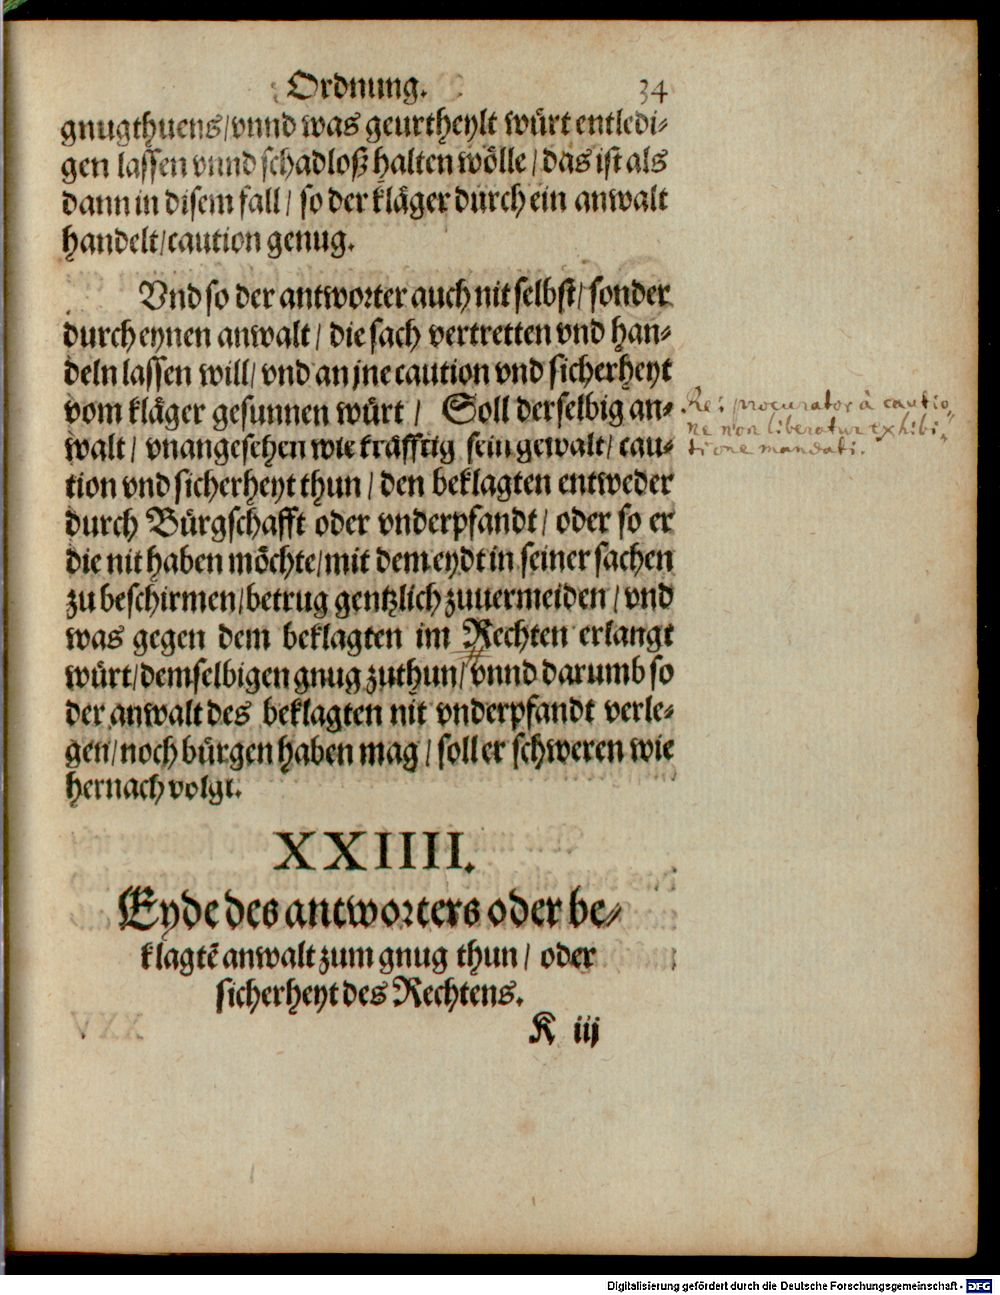 Ordnung. 34
gnugthuens/vnnd was geurtheylt würt entledi⸗
gen lassen vnnd schadloß halten wölle/das ist als
dann in disem fall/ so der kläger durch ein anwalt
handelt/caution genug.
Vnd so der antworter auch nit selbst/ sonder
durch eynen anwalt/ die sach vertretten vnd han⸗
deln lassen will/ vnd an jne caution vnd sicherheyt
vom kläger gesunnen würt/ Soll derselbig an⸗
walt/ vnangesehen wie kräfftig sein gewalt/ cau⸗
tion vnd sicherheyt thun/ den beklagten entweder
durch Bürgschafft oder vnderpfandt/ oder so er
die nit haben möchte/mit dem eydt in seiner sachen
zu beschirmen/betrug gentzlich zuuermeiden/ vnd
was gegen dem beklagten im Rechten erlangt
würt/demselbigen gnug zuthun/ vnnd darumb so
der anwalt des beklagten nit vnderpfandt verle⸗
gen/noch bürgen haben mag/ soll er schweren wie
hernach volgt.
Rei procurator à cautio⸗
ne non liberatur exhibi⸗
tione mandati.
XXIIII.
Eyde des antworters oder be⸗
klagtē anwalt zum gnug thun/ oder
sicherheyt des Rechtens.
K iij
Digitalisierung gefördert durch die Deutsche Forschungsgemeinschaft - DFG